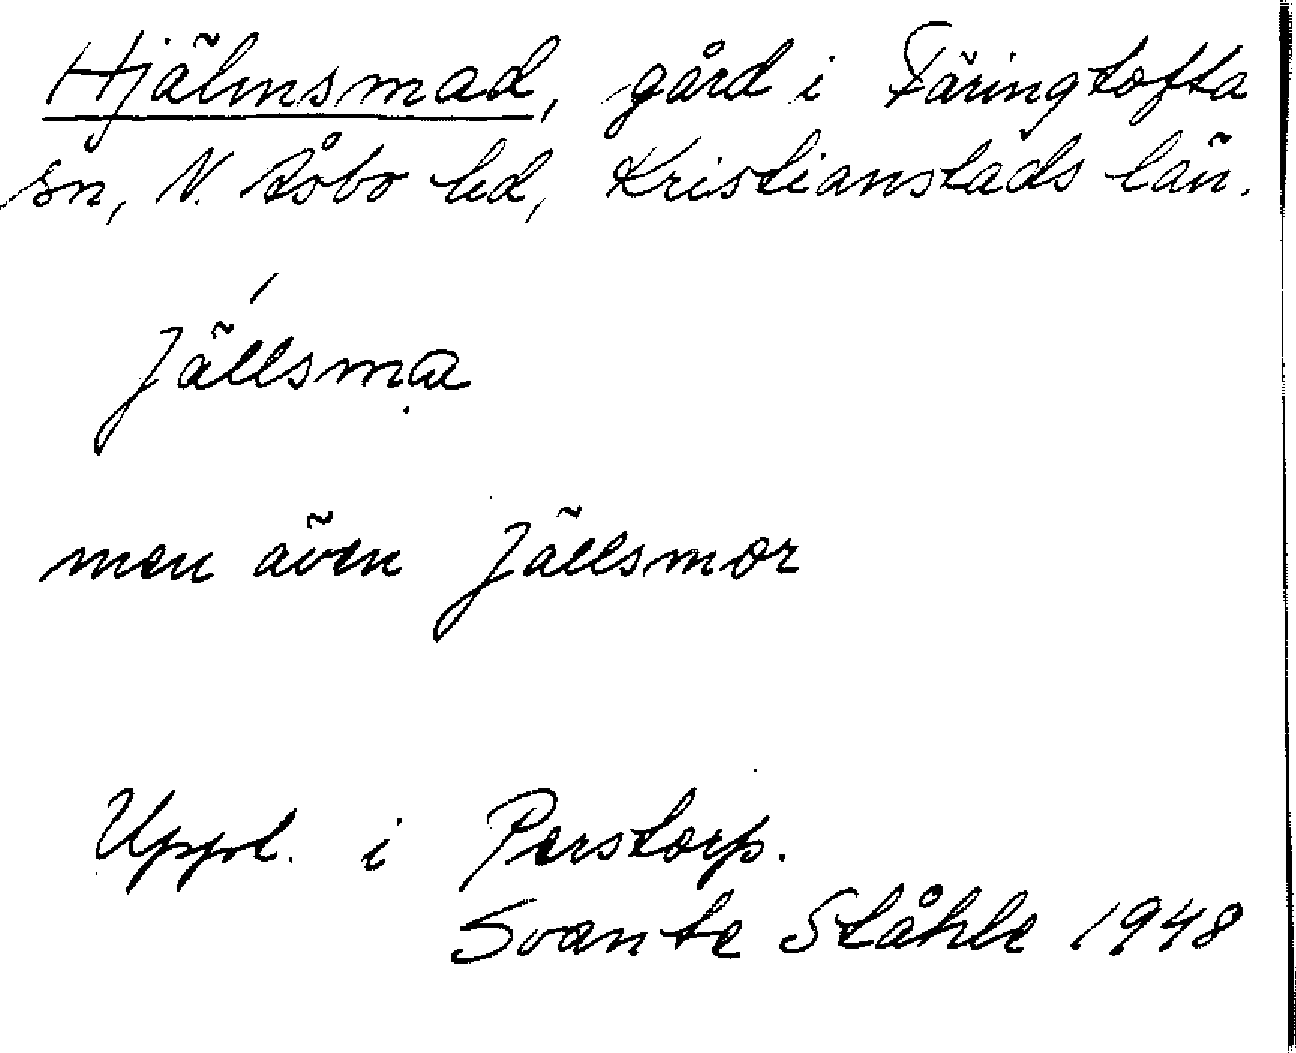 Hjälmsmad, gård i Färingtofta
sn, N. Åsbo hd, Kristianstads län.
Jällsma
men även Jällsmor
Uppt. i Perstorp.
Svante Ståhle 1948